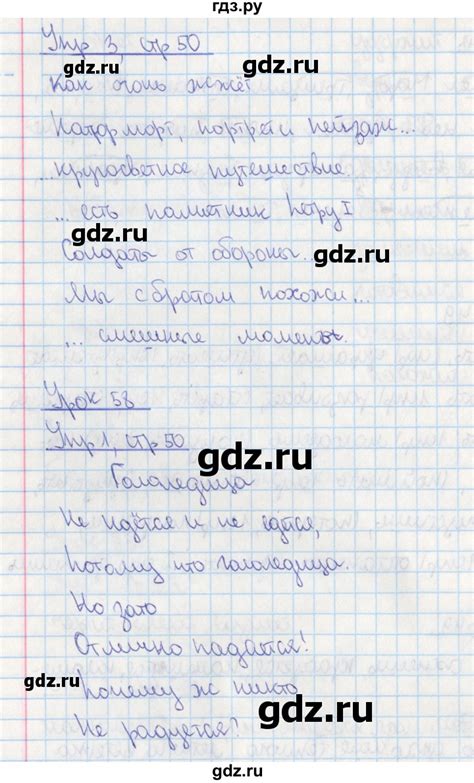 гдз.ру
Упр 3, стр 50
gdz.ru gdz.ru
Как огонь жжёт
Натюрморт, портрет и пейзаж...
кругосветное путешествие.
gdz.ru
... есть памятник Петру I
Солдаты от обороны...
gdz.ru
Мы с братом похожи...
... смешные моменты.
gdz.ru
Урок 58
Упр 1, стр 50
gdz.ru
Гололедица
Не идётся и не едется,
gdz.ru
Потому что гололедица.
Но зато
gdz.ru
Отлично падается!
gdz.ru
Почему ж никто
gdz.ru
Не радуется?
gdz.ru